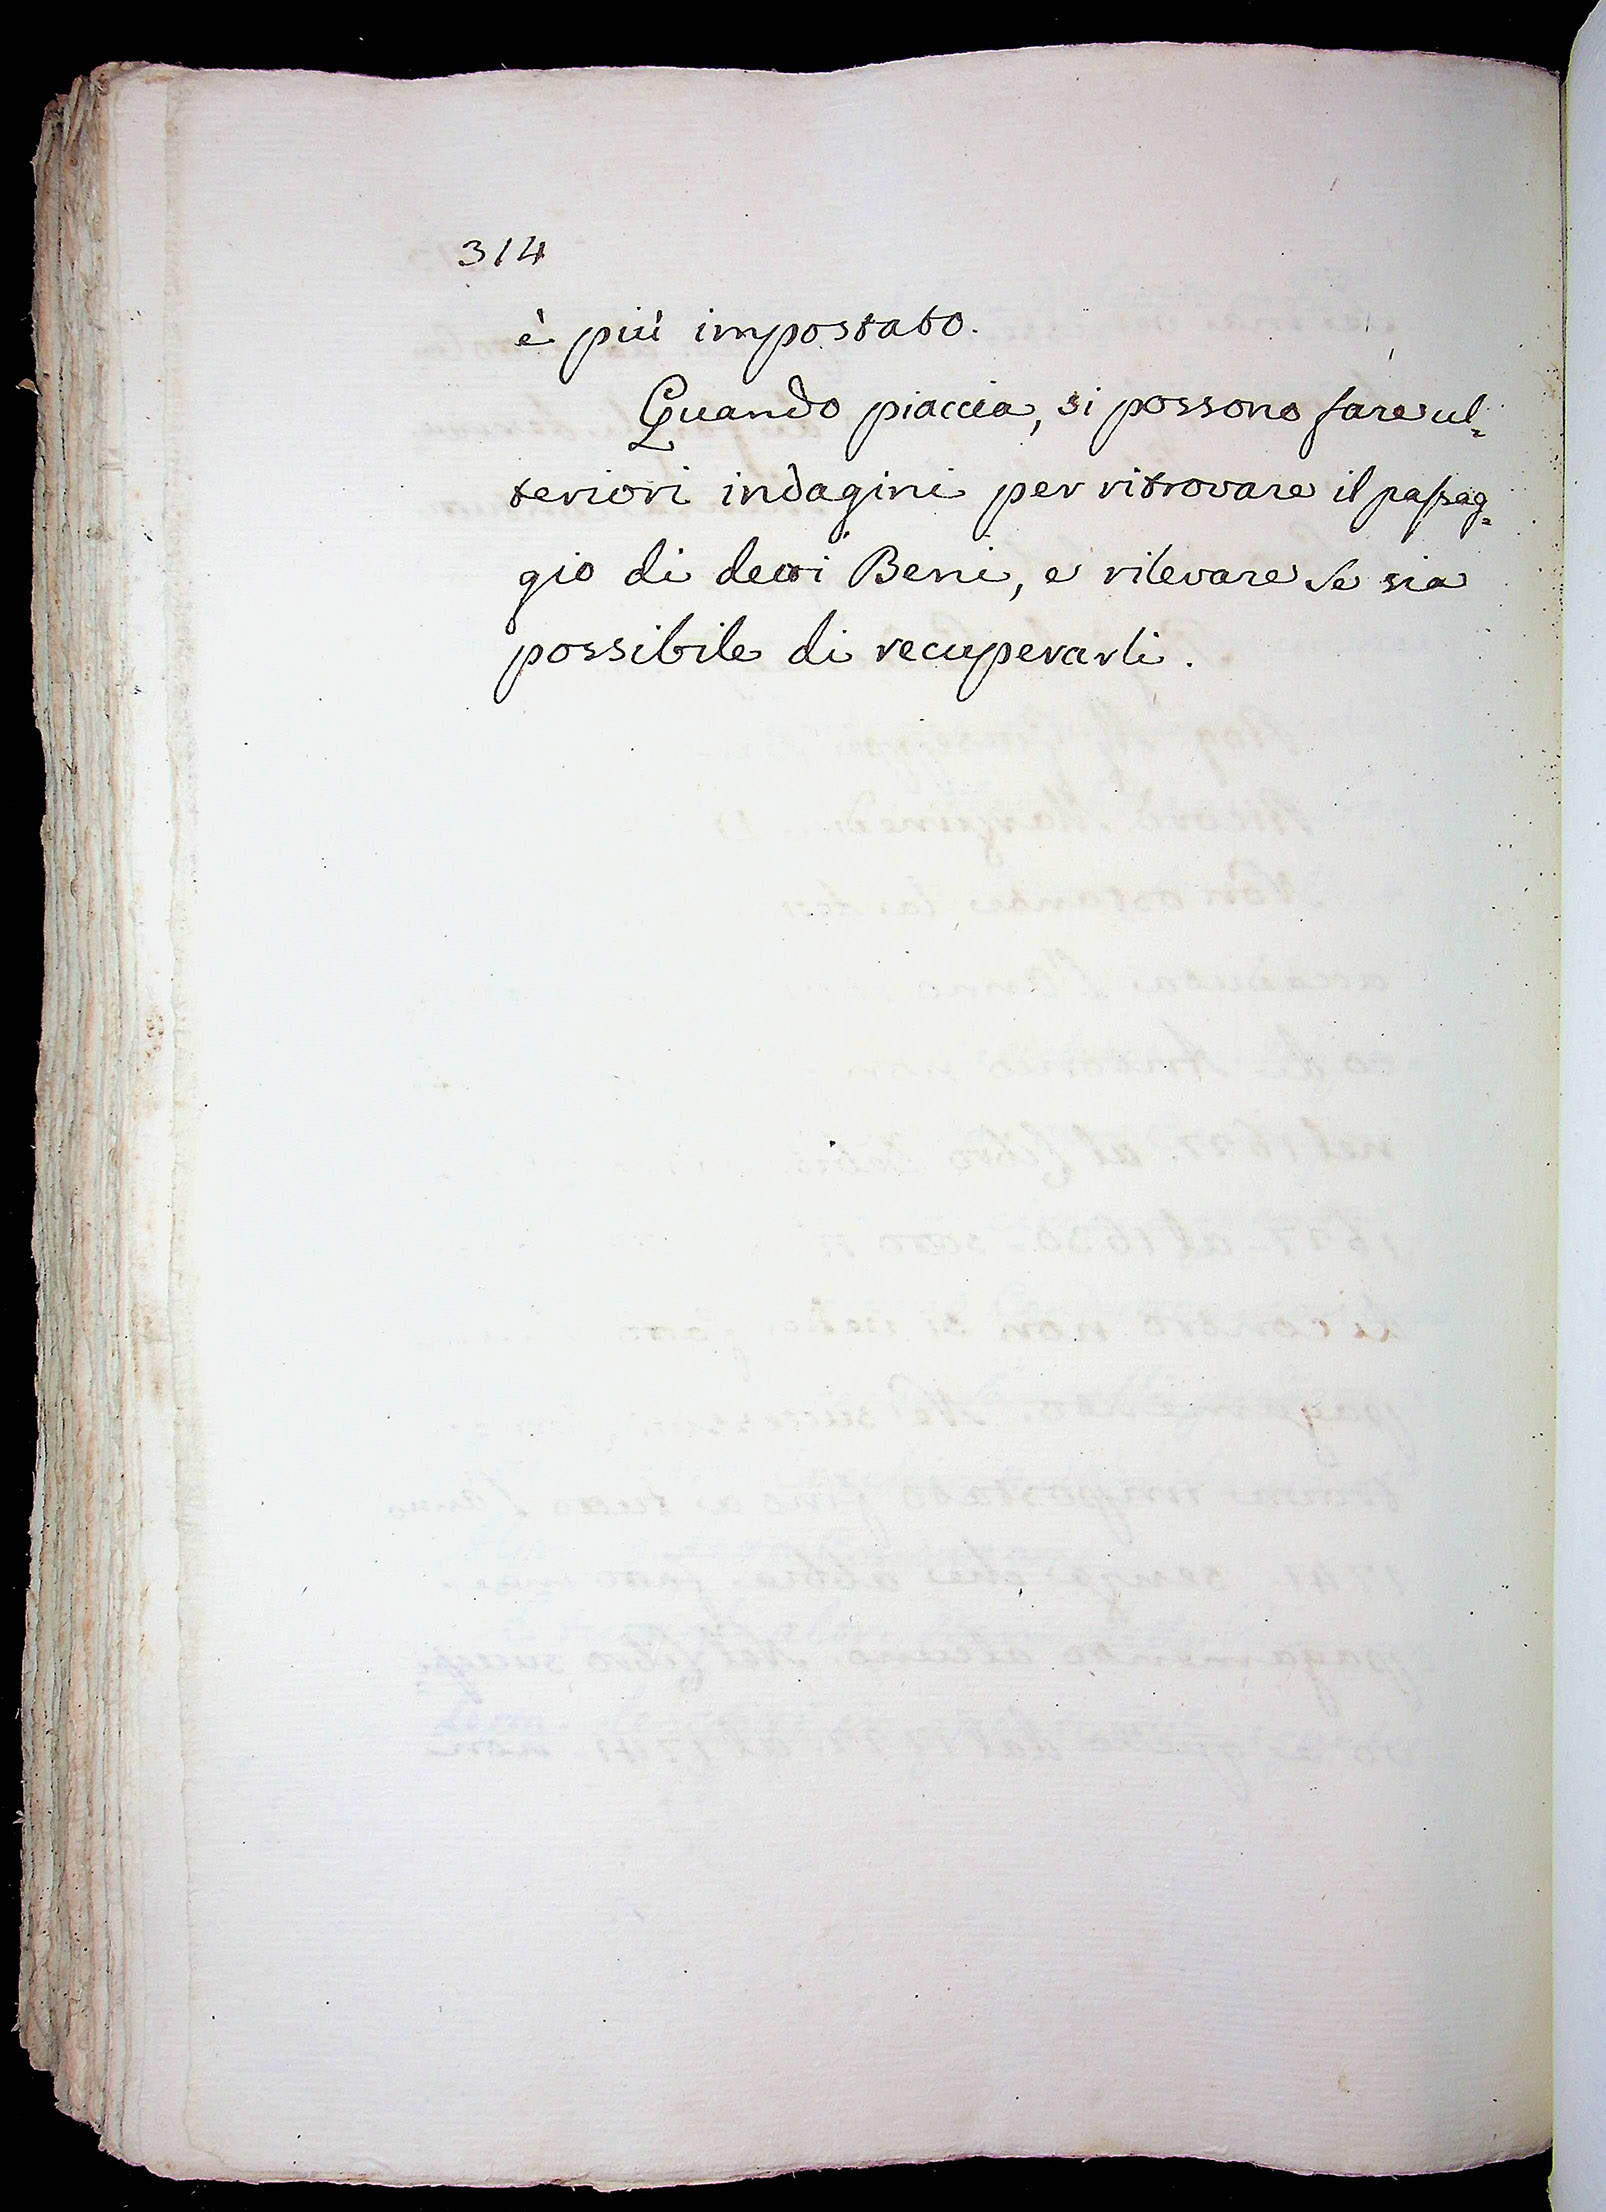 314
è più impostato.
Quando piaccia, si possono fare ul=
teriori indagini per ritrovare il passag=
gio di detti Beni, e rilevare se sia
possibile di recuperarli.